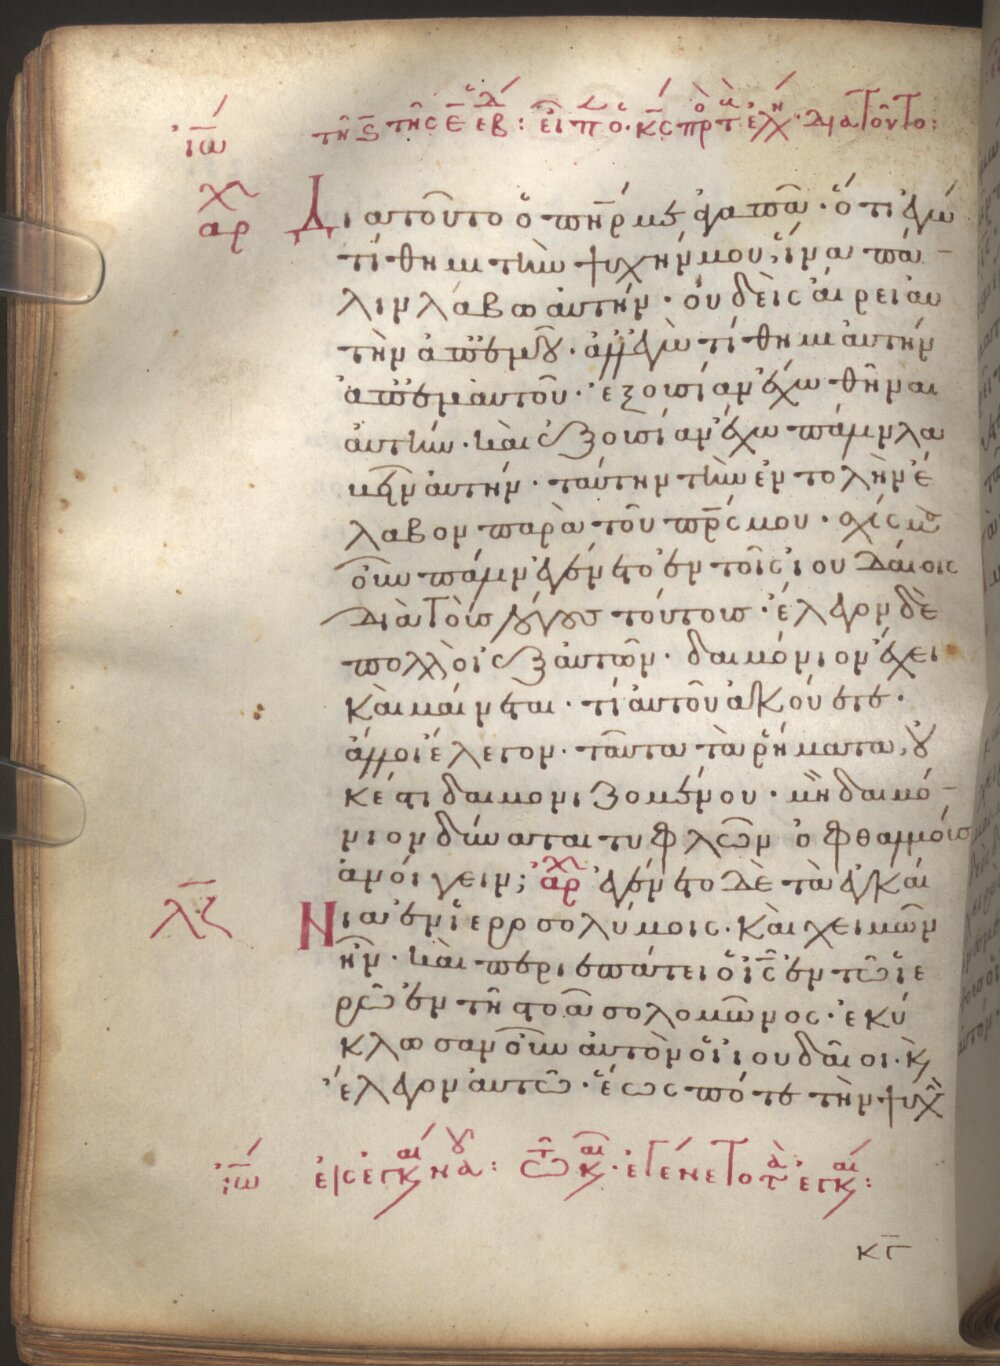 ἰω τῇ ϛ τῆς ε ἑβ: εἶπ ὁ κς πρ τ ἐλη διατοῦτο:
χ
αρ
Διατοῦτο ὁ πηρ με ἀγαπᾶ· ὅτι ἐγὼ
τίθημι τὴν ψυχήν μου, ἵνα πά
λιν λάβω αὐτήν· οὐδεὶς αἴρει αυ
τὴν ἀπεμοῦ· ἀλλεγὼ τίθημι αὐτὴν
ἀπεμαυτοῦ· ἐξουσίαν ἔχω θεῖναι
αὐτὴν· καὶ ἐξουσίαν ἔχω πάλιν λα
βεῖν αὐτήν· ταύτην τὴν ἐντολὴν ἔ
λαβον παρὰ τοῦ πρς μου· σχίσμα
οὖν πάλιν ἐγένετο ἐν τοῖς ἰουδαίοις
διὰ τοὺς λόγους τούτους· ἔλεγον δὲ
πολλοὶ ἐξ αὐτῶν· δαιμόνιον ἔχει
καὶ μαίνεται· τί αὐτοῦ ἀκούετε·
ἄλλοι ἔλεγον· ταῦτα τὰ ῥήματα, οὐ
κέστι δαιμονιζομένου· μὴ δαιμό
νιον δύναται τυφλῶν ὀφθαλμοὺς
ἀνοίγειν; ἀρχ ἐγένετο δὲ τὰ ἐγκαί
λζ
Νια ἐν ἱεροσολύμοις· καὶ χειμὼν
ἦν· καὶ περιεπάτει ὁ ις ἐν τῷ ἱε
ρῷ ἐν τῇ στοᾷ σολομῶνος· ἐκύ
κλωσαν οὖν αὐτὸν οἱ ἰουδαῖοι· κ
ἔλεγον αὐτῷ· ἕως πότε τὴν ψυχὴ
ἰω εἰς ἐγκ ναου: τω κ· ἐγένετο τὰ ἐγκαι:
κγ